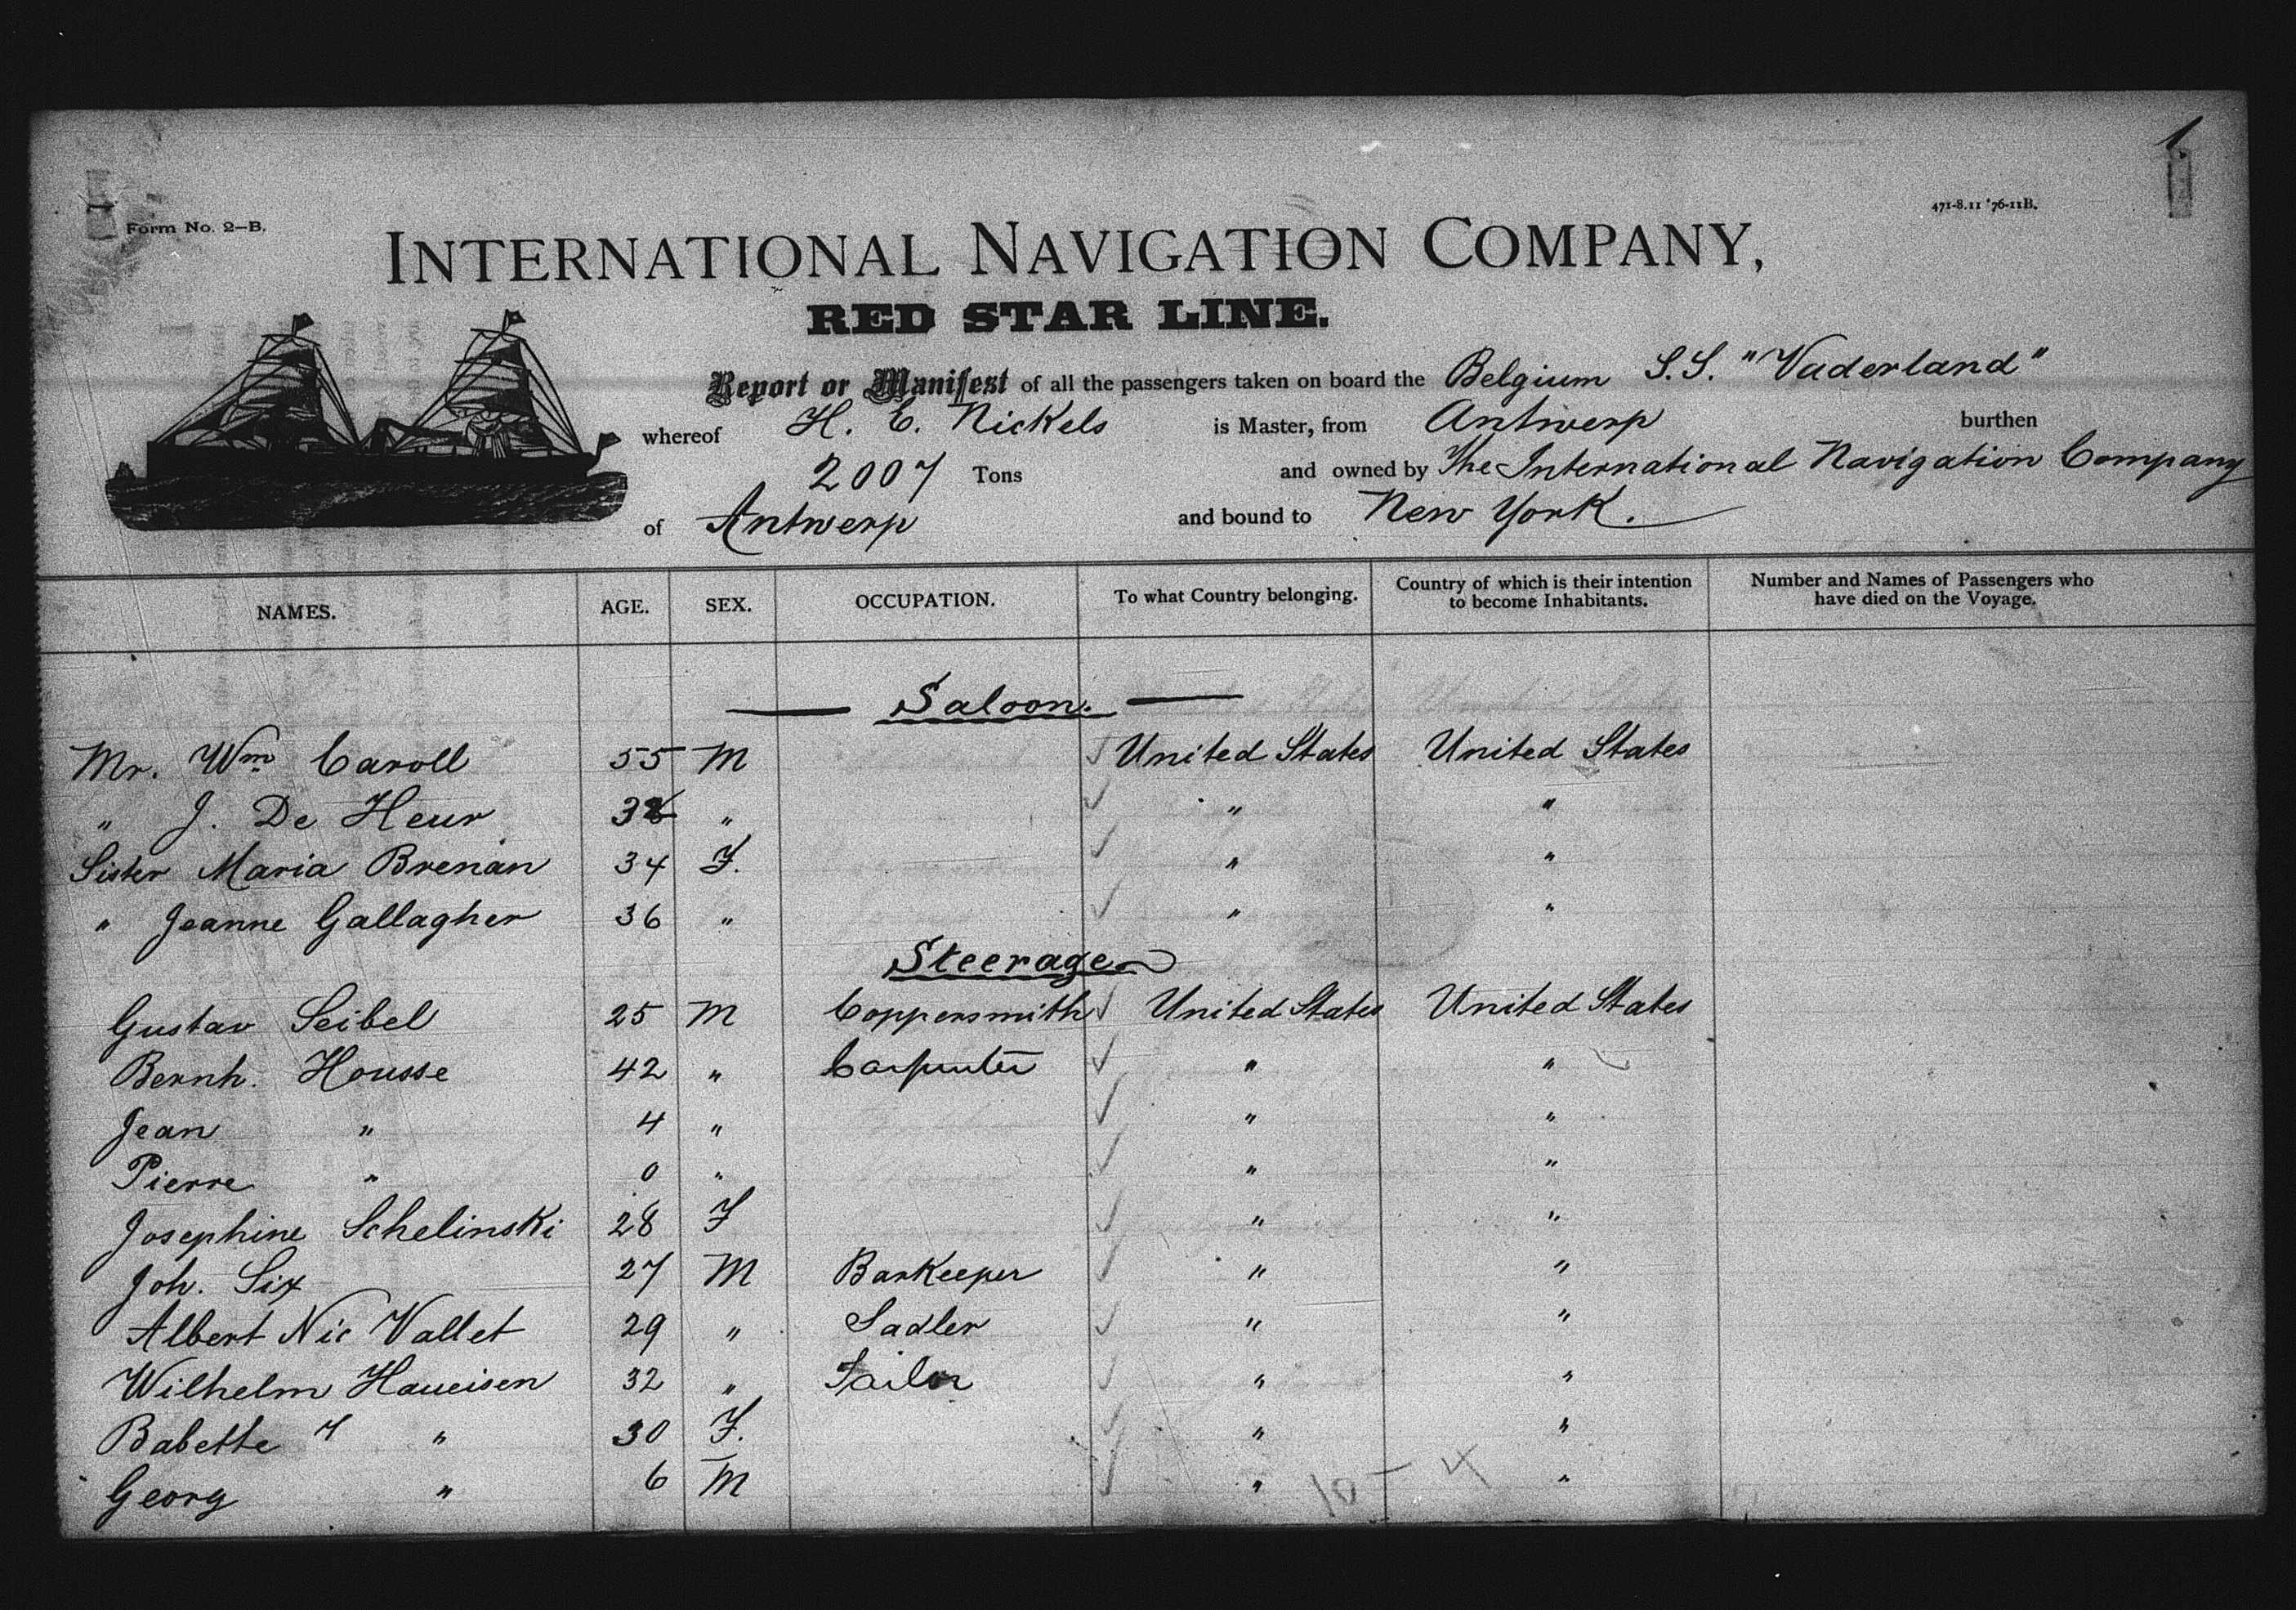 1.
471-8.11 '76-11B.
Form No. 2–B.
INTERNATIONAL NAVIGATION COMPANY,
RED STAR LINE.
Report or Manifest of all the passengers taken on board the Belgium S.S. "Vaderland"
whereof H. E. Nickels is Master, from Antwerp burthen
2007 Tons and owned by The International Navigation Company
of Antwerp and bound to New York.
NAMES. AGE. SEX. OCCUPATION. To what Country belonging. Country of which is their intention to become Inhabitants. Number and Names of Passengers who have died on the Voyage.
Saloon.
Mr. Wm Caroll 55 M United States United States
" J. De Heur " " "
Sister Maria Brenan 34 F. " "
" Jeanne Gallagher 36 " " "
Steerage
Gustav Seibel 25 M Coppersmith United States United States
Bernh. Housse 42 " Carpenter " "
Jean " 4 " " "
Pierre " 0 " " "
Josephine Schelinski 28 F " "
Joh. Six 27 M Barkeeper " "
Albert Nic Vallet 29 " Sadler " "
Wilhelm Haueisen 32 " Tailor " "
Babette " 30 F. " "
Georg " 6 M " "
10 – 4